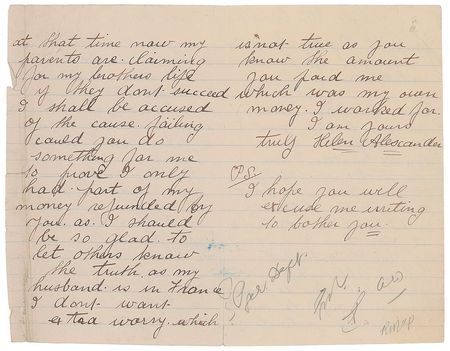 at that time now my
parents are claiming
for my brothers life
if they dont succeed
I shall be accused
of the cause. failing
could you do
something for me
to prove I only
had part of my
money refunded by
you. as. I should
be so glad. to
let others know
the truth as my
husband is in France
I dont want
extra worry. which
is not true as you
know the amount
you paid me
which was my own
money. I worked for.
I am yours
truly Helen Alexander
P.S.
I hope you will
excuse me writing
to bother you.
Dept.